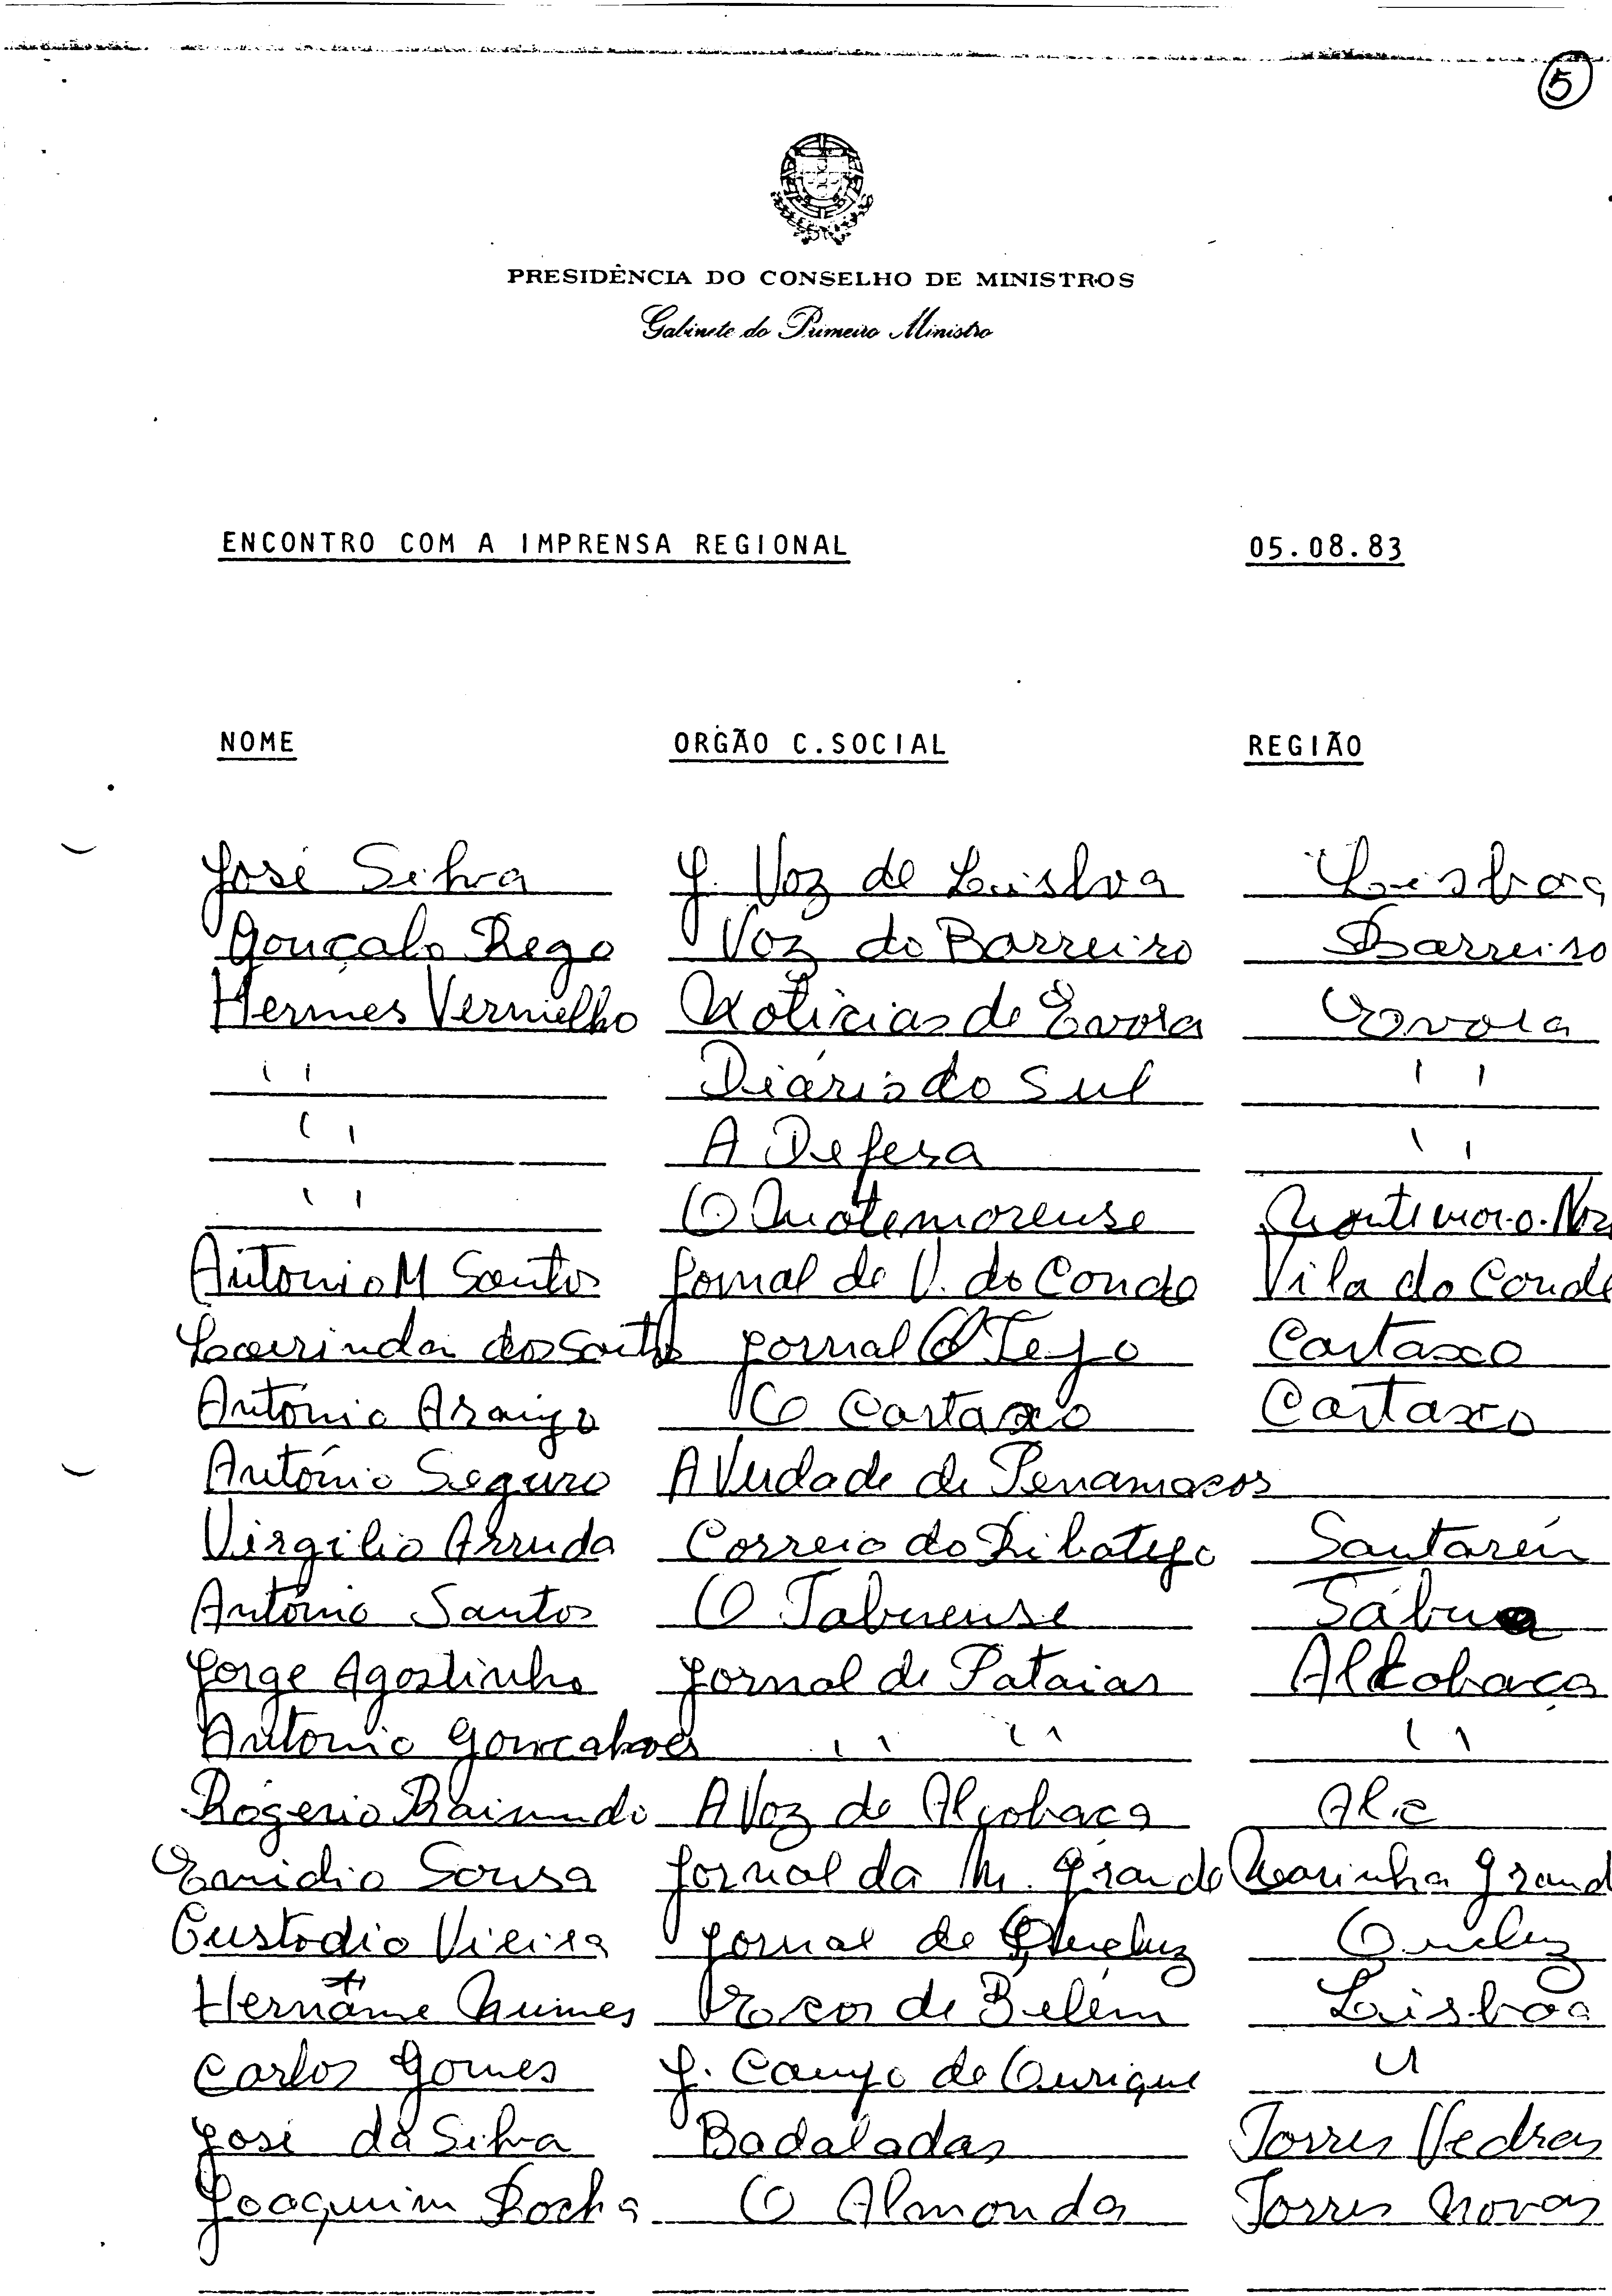 5
PRESIDÊNCIA DO CONSELHO DE MINISTROS
Gabinete do Primeiro Ministro
ENCONTRO COM A IMPRENSA REGIONAL 05.08.83
NOME ORGÃO C.SOCIAL REGIÃO
José Silva J. Voz de Lisboa Lisboa
Gonçalo Rego Voz do Barreiro Barreiro
Hermes Vermelho Noticias de Evora Evora
" Diário do Sul "
" A Defesa "
" O Montemorense Montemor-o-Nov
Antonio M Santos Jornal de V. do Conde Vila do Conde
Laurinda dos Santos jornal O Tejo Cartaxo
António Araujo O Cartaxo Cartaxo
António Seguro A Verdade de Penamacor
Virgilio Arruda Correio do Ribatejo Santarém
António Santos O Tabuense Tábua
Jorge Agostinho Jornal de Pataias Alcobaça
Antonio Goncalves " " "
Rogerio Raimundo A Voz de Alcobaça Alc
Emidio Sousa Jornal da M. Grande Marinha Grand
Custodio Vieira Jornal de Queluz Queluz
Hernâni Nunes Ecos de Belém Lisboa
Carlos Gomes J. Campo de Ourique "
José da Silva Badaladas Torres Vedras
Joaquim Rocha O Almonda Torres Novas